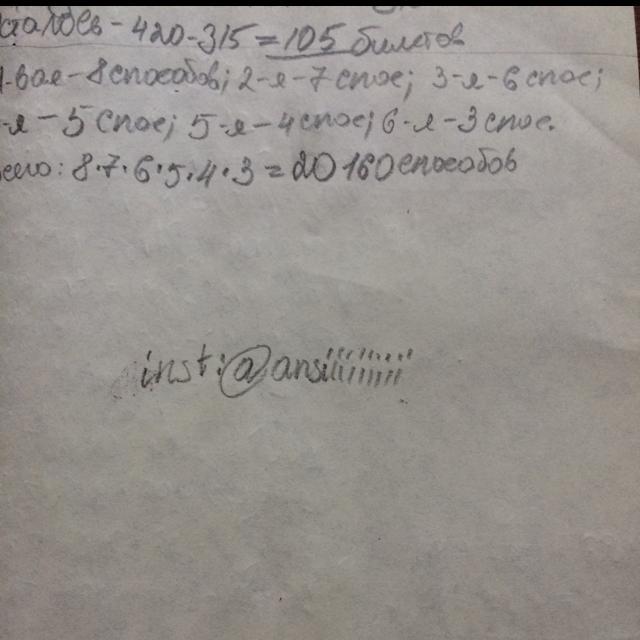 420-315=105 билетов
8 способов; 2-я-7 спос; 3-я-6 спос;
-я-5 спос; 5-я-4 спос; 6-я-3 спос.
сего: 8·7·6·5·4·3=20160 способов
inst:@ansiiiiiiiiii